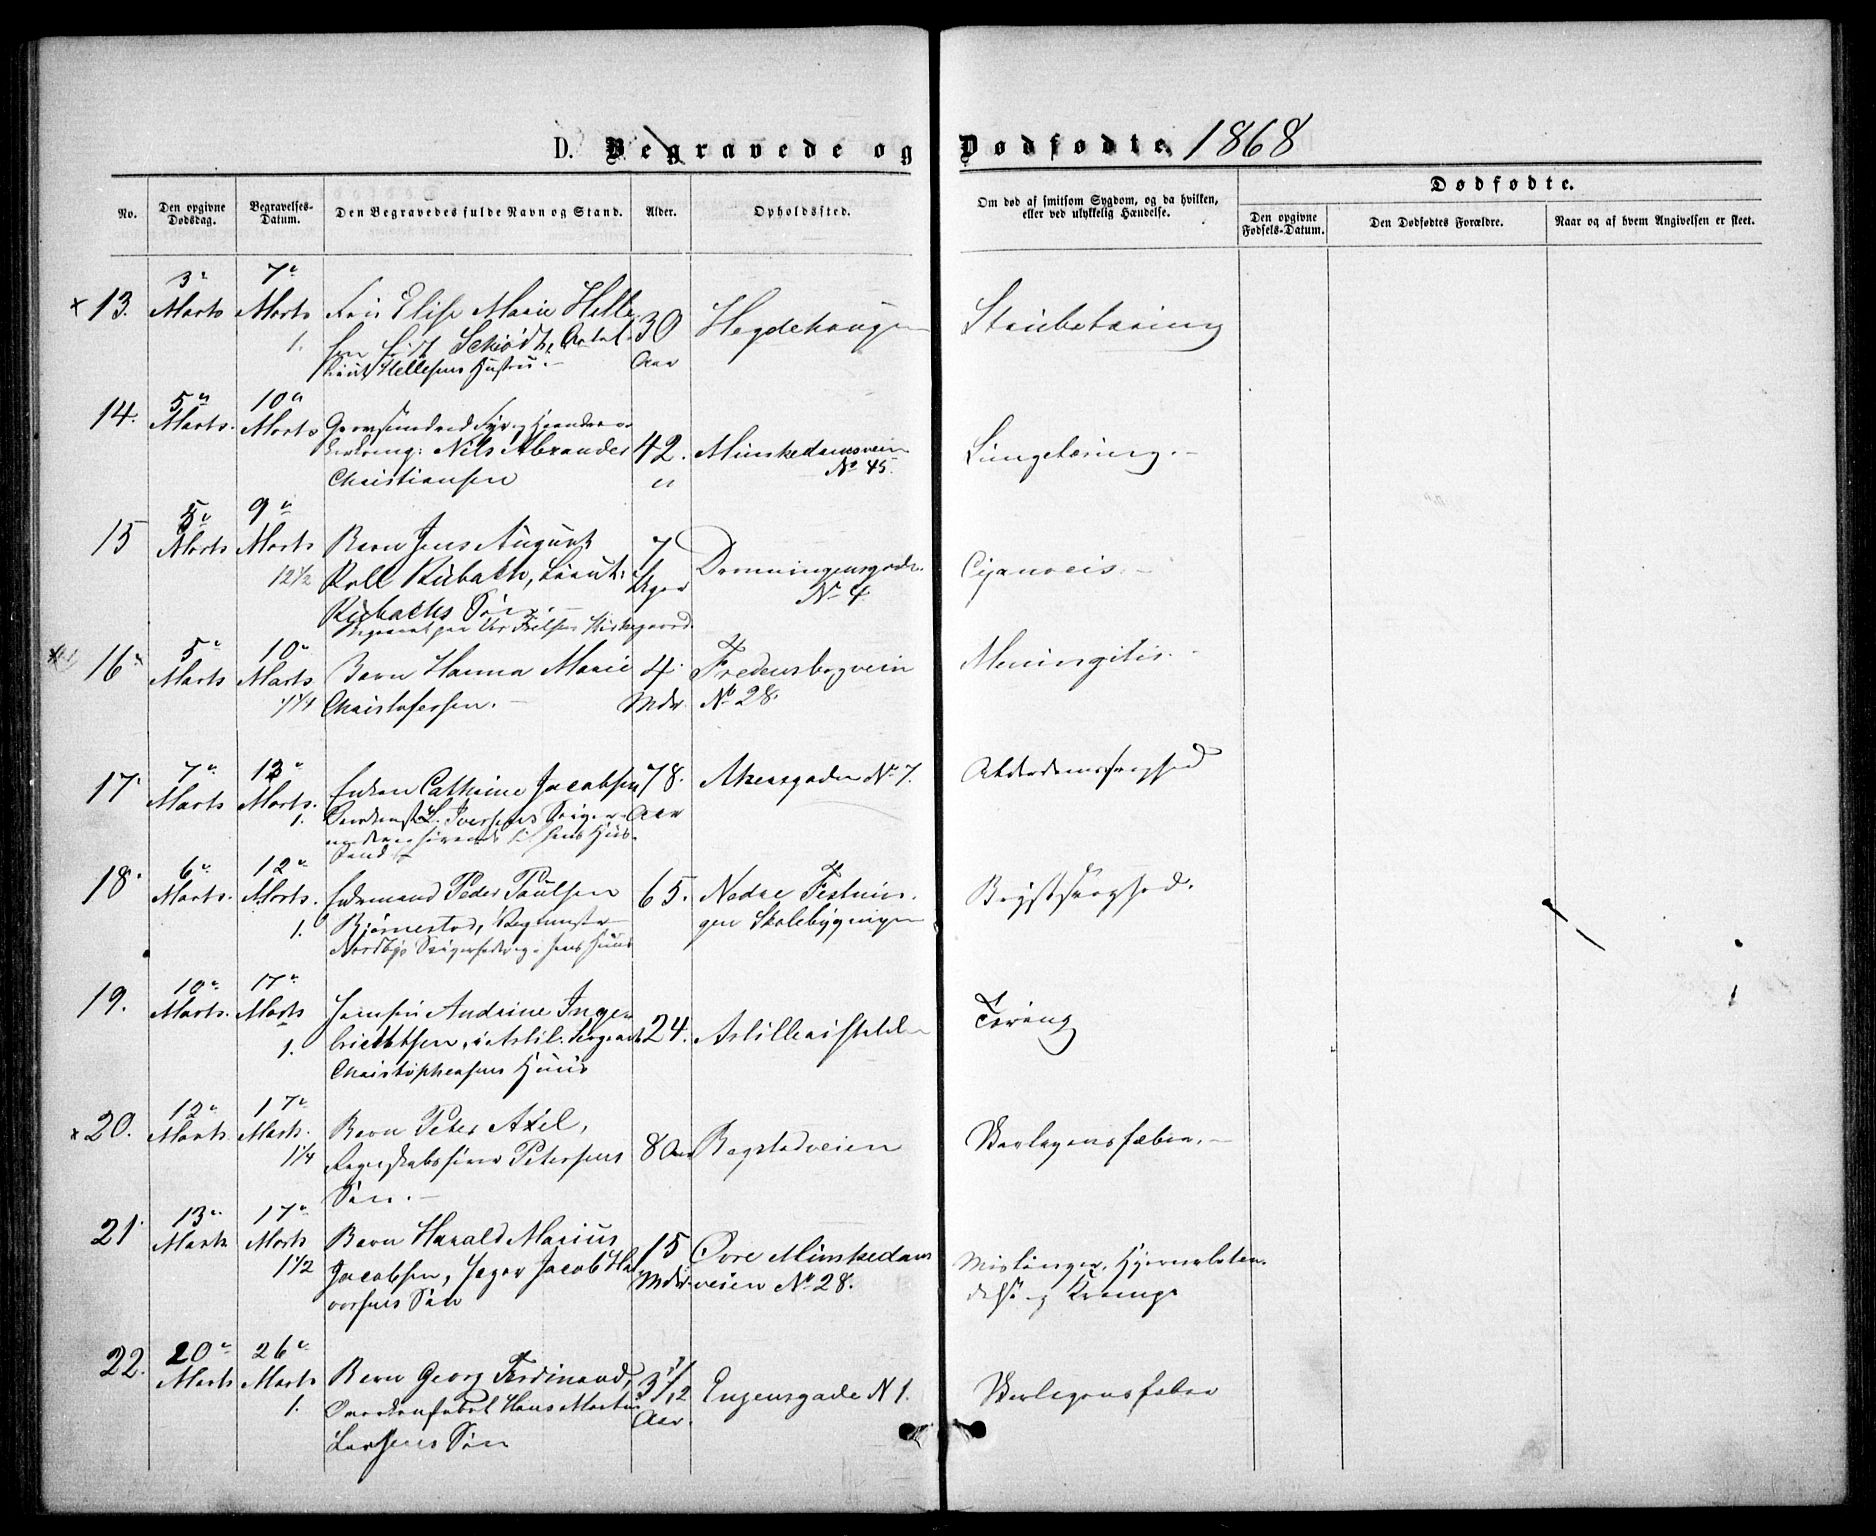 D. Begravede og Dødfødte. 1868
No.
Den opgivne Dødsdag.
Begravelses-Datum.
Den Begravedes fulde Navn og Stand.
Alder.
Opholdssted.
Om død af smitsom Sygdom, og da hvilken, eller ved ulykkelig Hændelse.
Dødfødte.
Den opgivne Fødsels-Datum.
Den Dødfødtes Forældre.
Naar og af hvem Angivelsen er skeet.
x 13.
3
Marts
7
Marts
1.
Elise Marie Helle
Schiødt,
Hellesens Hustru.
30
Aar
Hegdehaugen
Strubetæring
14.
5
Marts.
10
Marts
Nils Alexander
Christiansen
42.
"
Munkedamsveien
No 45.
Lungetæring.
15
5
Marts
9
Marts
12 1/2
Barn Jens August
Roll Rubach, Lieut:
Rubachs Søn.
Begravet paa Vor Frelsers Kirkegaard.
7
Dronningensgade
No 4.
Cyanosis.
16
5
Marts
10
Marts
Barn Hanna Marie
Christofersen.
4
Mdr.
Fredensborgvein
No 28.
Meningitis.
17
7
Marts
13
Marts.
1.
Enken Cathrine Jacobsen
Iversens
78.
Aar
Akersgaden No 7.
Alderdomssvaghed
18
6
Marts.
12
Marts.
1.
Peder Paulsen
Bjørnestad,
65.
Nedre Fæstnin-
gen Skolebygningen
Brystsvaghed.
19.
10
Marts.
17
Marts
1.
Andrine Inge
brichtsen, Artil.
Christophersens Huus
24.
Artilleristalden
Tæring
x 20.
12
Marts.
17
Marts.
1 1/4
Barn Peter Axel,
Regnskabsfører Petersens
Søn.
8 Aar
Bogstadveien
Skarlagensfeber.
21.
13
Marts
17
Marts
1 1/2
Barn Harald Marius
Jacobsen, Jæger Jacob Hal
vorsens Søn
15
Mdr.
Øvre Munkedams
veien No 28.
Mislinger, Hjernebetæn-
delse og Krampe
22.
20
Marts
26
Marts
1.
Barn Georg Ferdinand,
Hans Martin
Larsens Søn
3 1/12
Aar.
Eugensgade N 1.
Skarlagensfeber